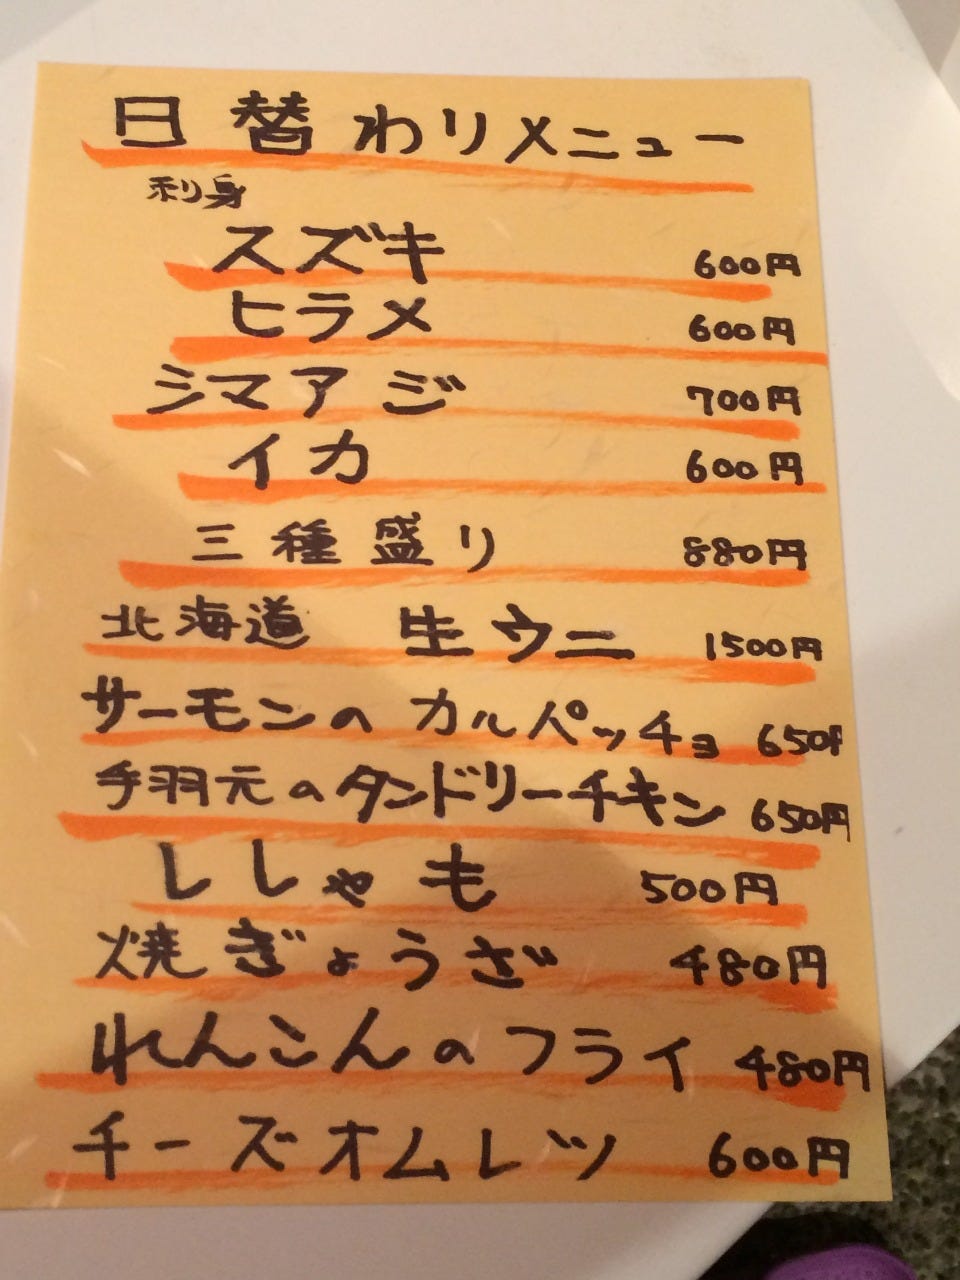 日替わりメニュー
刺身
スズキ 600円
ヒラメ 600円
シマアジ 700円
イカ 600円
三種盛り 880円
北海道 生ウニ 1500円
サーモンのカルパッチョ 650円
手羽元のタンドリーチキン 650円
ししゃも 500円
焼ぎょうざ 480円
れんこんのフライ 480円
チーズオムレツ 600円